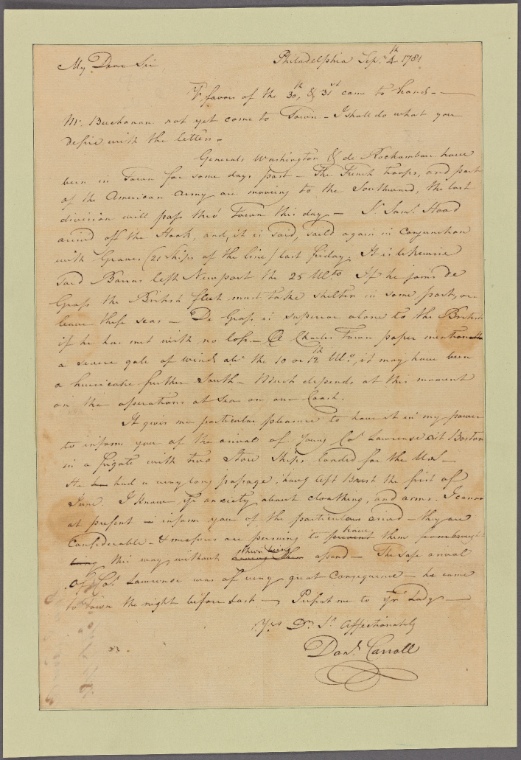 My Dear Sir
Philadelphia Sepr. 4th 1781
Yr favors of the 30th, & 31st came to hand —
Mr. Buchanan not yet come to Town — I shall do what you
desire with the letter —
Generals Washington & de Rochambeau have
been in Town for some days past — The French troops, and part
of the American Army are moving to the Southward, the last
division will pass thro' Town this day — Sr. Saml. Hood
arrived off the Hook and, it is said, sail'd again in Conjunction
with Graves (20 ships of the line) last friday. It is likewise
said Barras left Newport the 25 Ulto. If he joins de
Grass the British fleet must take shelter in some port, or
leave these seas — De Grass is superior alone to the British
if he has met with no loss — A Charles Town paper mentions
a severe gale of wind abt. the 10 or 12th Ulo., it may have been
a hurricane further South — Much depends at this moment
on the operations at Sea on our Coast.
It gives me particular pleasure to have it in my power
to inform you of the arrival of Young Col Lawrence at Boston
in a frigate with two Store Ships loaded for the U S —
He had a very long passage, having left Brest the first of
June I know Yr anxiety about cloathing, and arms. I cannot
at present inform you of the particulars — they are
Considerable — & measures are pursuing to have them
this way without — The safe arrival
of Col. Lawrence was of very great Consequence — he came
to Town the night before last — Present me to Yr Lady —
Yrs Dr. Sr. Affectionately
Danl. Carroll